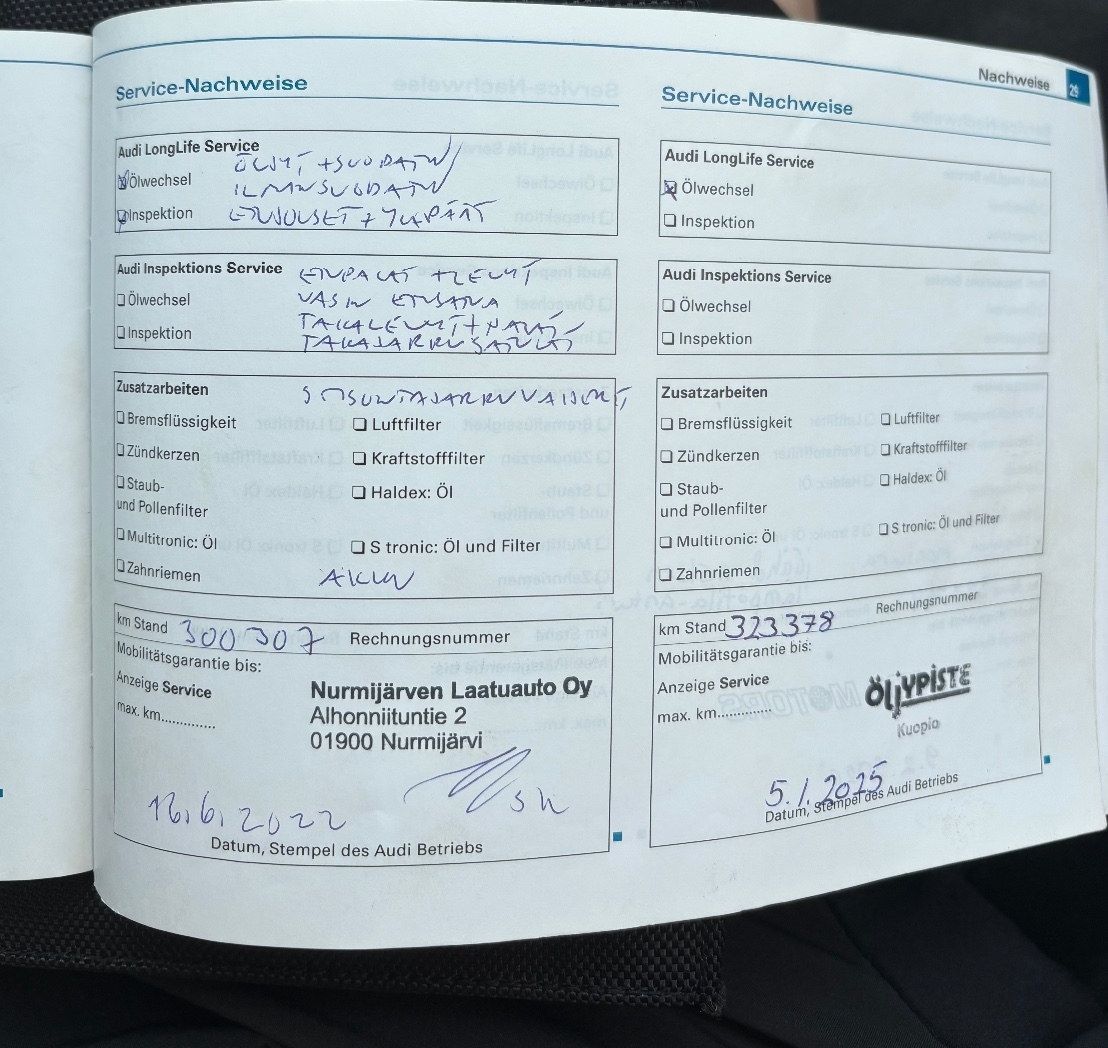 Nachweise 29
Service-Nachweise
Audi LongLife Service
ÖLJYT + SUODATIN
Ölwechsel
ILMNSUODATIN
Inspektion
Audi Inspektions Service
Ölwechsel
VASIN
Inspektion
Zusatzarbeiten
SEISONTAJARRUVAIJERIT
Bremsflüssigkeit
Luftfilter
Zündkerzen
Kraftstofffilter
Staub-
und Pollenfilter
Haldex: Öl
Multitronic: Öl
S tronic: Öl und Filter
Zahnriemen
AKKU
km Stand 300 307 Rechnungsnummer
Mobilitätsgarantie bis:
Anzeige Service
max. km..............
Nurmijärven Laatuauto Oy
Alhonniituntie 2
01900 Nurmijärvi
16.6.2022
Datum, Stempel des Audi Betriebs
Service-Nachweise
Audi LongLife Service
Ölwechsel
Inspektion
Audi Inspektions Service
Ölwechsel
Inspektion
Zusatzarbeiten
Bremsflüssigkeit
Luftfilter
Zündkerzen
Kraftstofffilter
Staub-
und Pollenfilter
Haldex: Öl
Multitronic: Öl
S tronic: Öl und Filter
Zahnriemen
km Stand 323378 Rechnungsnummer
Mobilitätsgarantie bis:
Anzeige Service
max. km..............
ÖLJYPISTE
Kuopio
5.1.2025
Datum, Stempel des Audi Betriebs